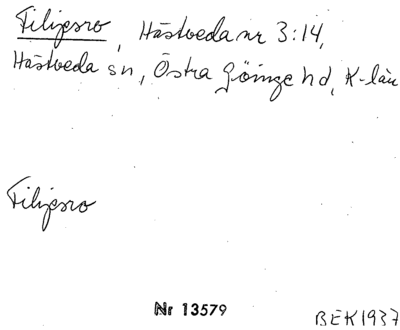 Filipsro, Hästveda nr 3:14,
Hästveda sn, Östra Göinge hd, K-län
Filipsro
Nr 13579
BEK1937